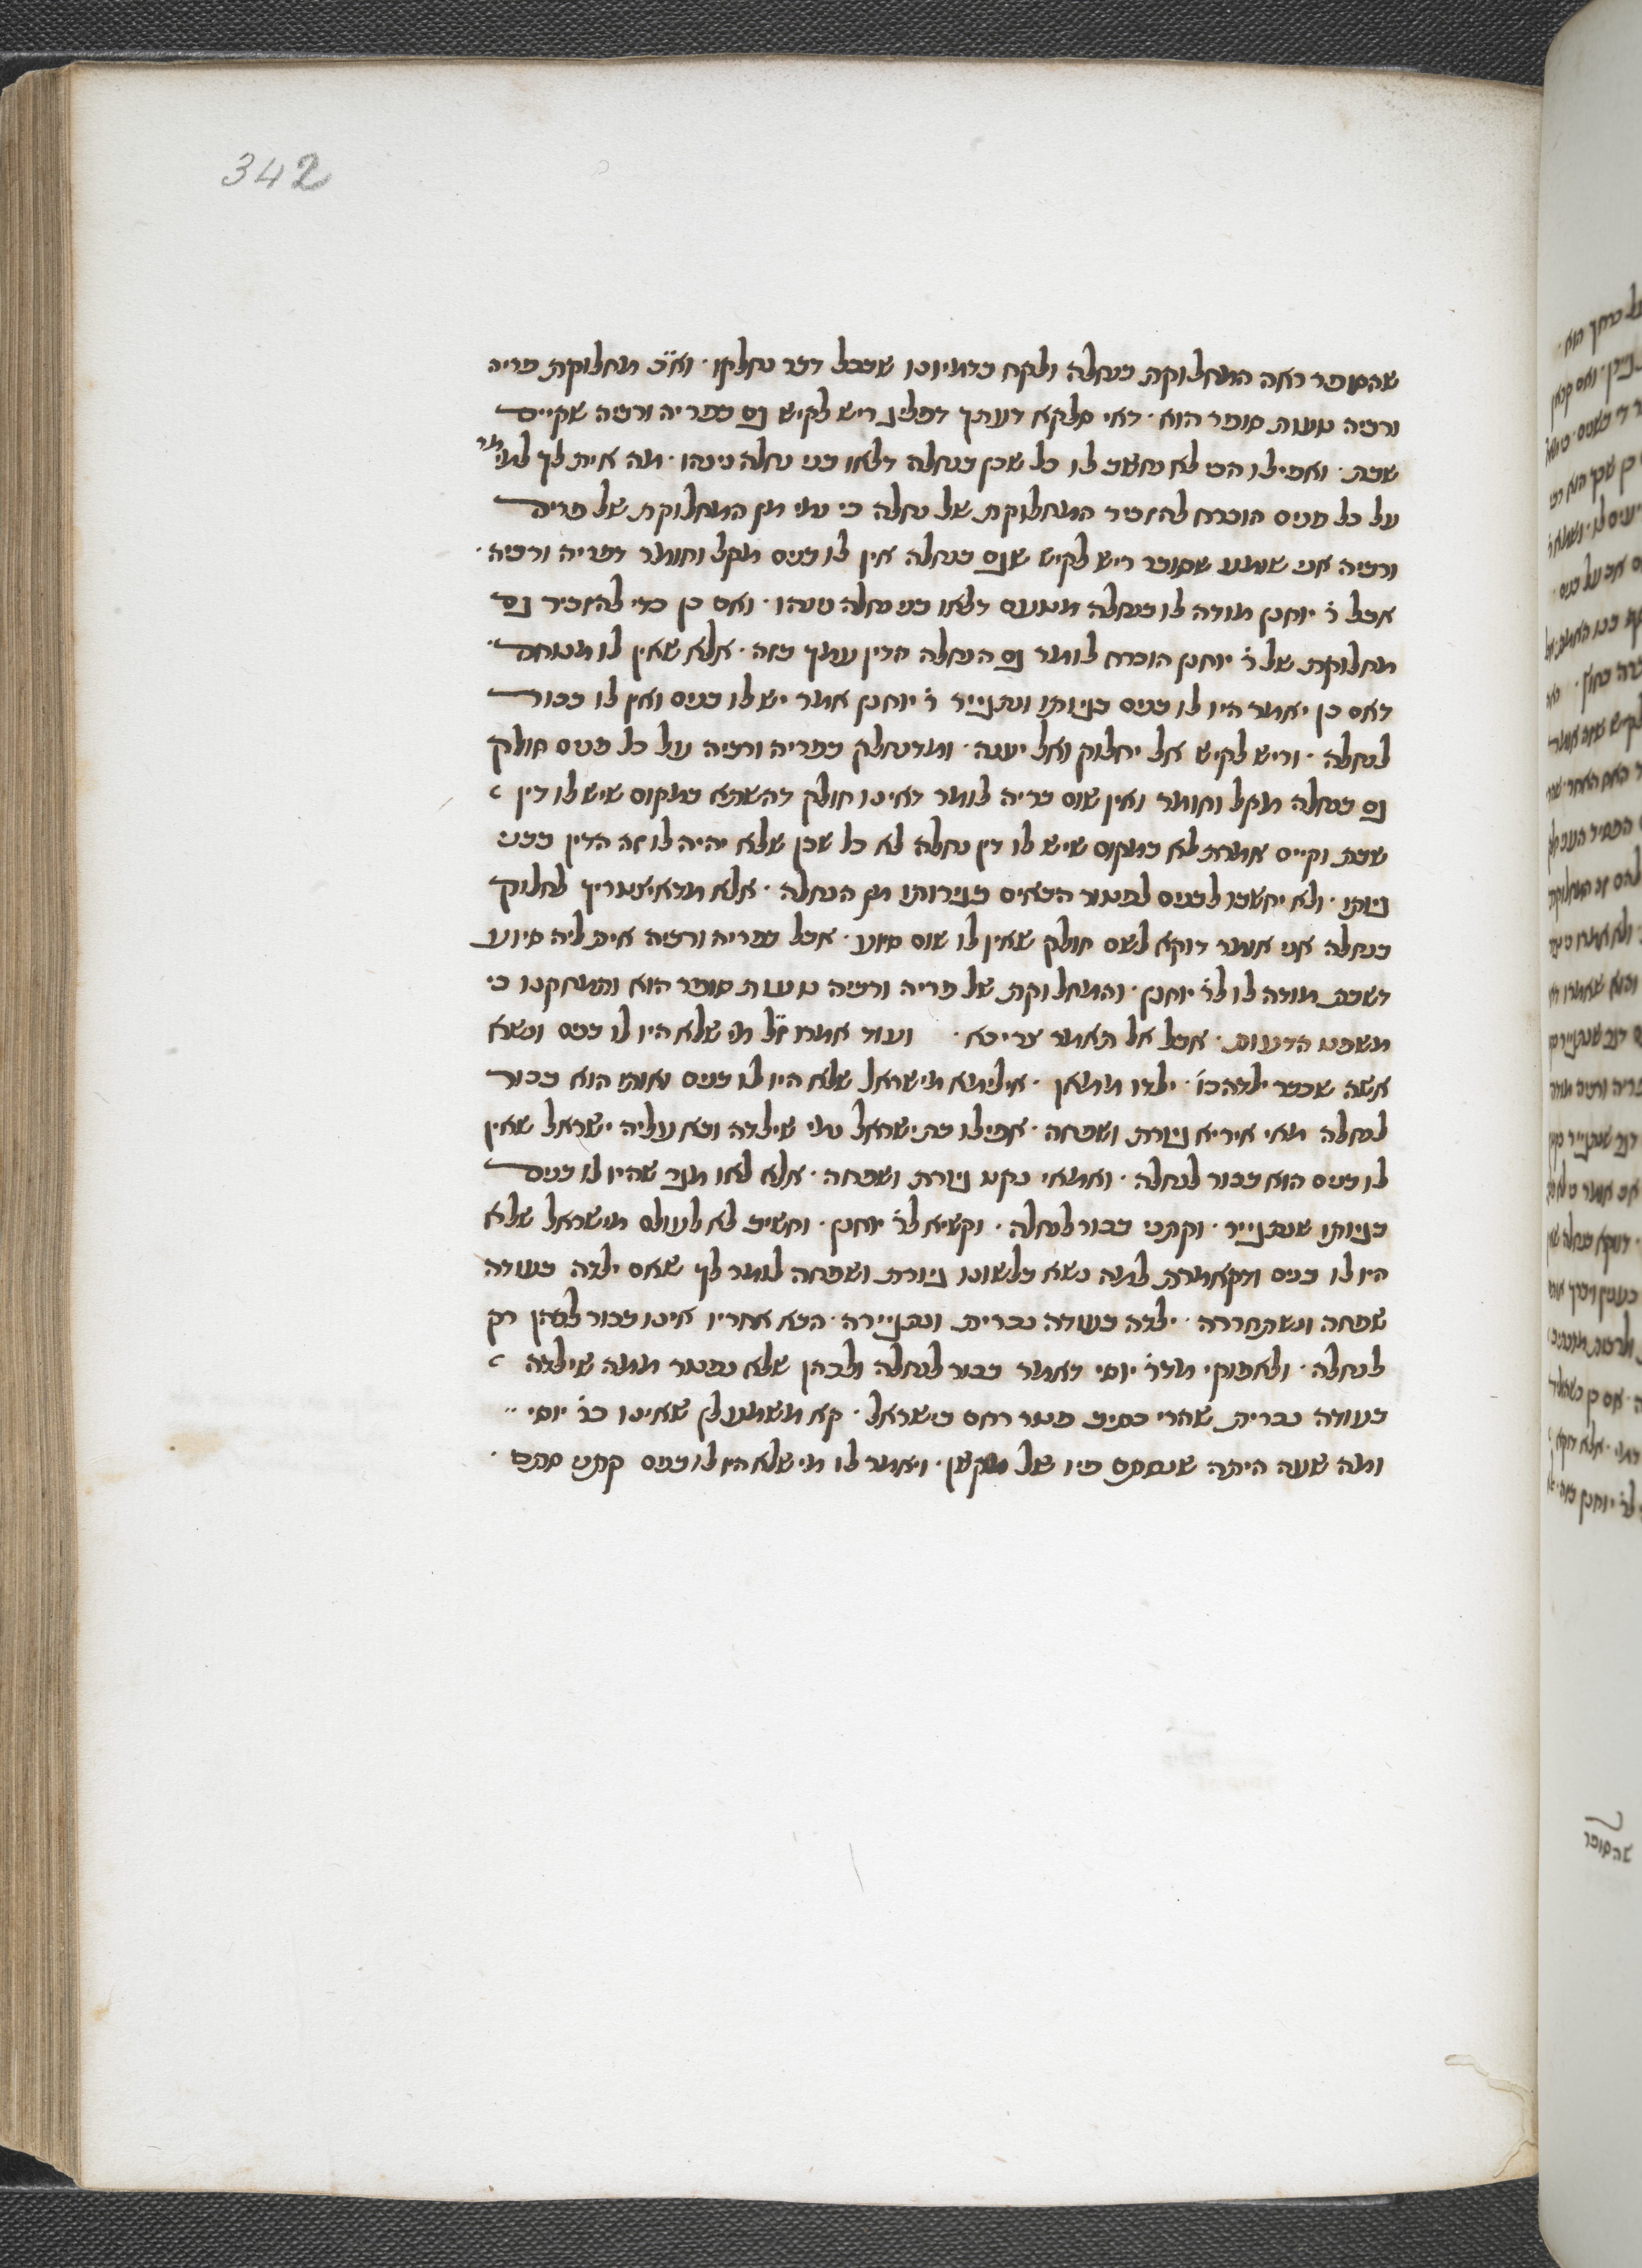 342
שהסופר ראה המחלוקת בנחלה ולקח בדמיונו שבכל דבר נחלקו · וא״כ מחלוקת פריה
ורביה טעות סופר הוא · דאי סלקא דעתך דפליג ריש לקיש גם בפריה ורביה שקיים
שבת · ואפילו הכי לא נחשב לו כל שכן בנחלה דלאו בני נחלה נינהו · מה אית לך למימר
על כל פנים הוכרח להזכיר המחלוקת של נחלה כי טפי מן המחלוקת של פריה
ורביה אני שומע שסובר ריש לקיש שגם בנחלה אין לו בנים מקל וחומר דפריה ורביה ·
אבל ר׳ יוחנן מודה לו בנחלה מטעם דלאו בני נחלה נינהו · ואם כן כדי להזכיר גם
מחלוקת של ר׳ יוחנן הוכרח לומר גם הנחלה הדין עמך בזה · אלא שאין לו מנוחה
דאם כן יאמר היו לו בנים בגיותו ונתגייר ר׳ יוחנן אמר יש לו בנים ואין לו בכור
לנחלה · וריש לקיש אל יחלוק ואל יענה · ומדנחלק בפריה ורביה על כל פנים חולק
גם בנחלה מקל וחומר ואין שום בריה לומר דאינו חולק דהשתא במקום שיש לו דין
שבת וקיים אמרת לא במקום שיש לו דין נחלה לא כל שכן שלא יהיה לו זה הדין בבני
גיותו · ולא יחשבו לבנים לפטור הבאים בגירותו מן הנחלה · אלא מדאיצטריך לחלוק
בנחלה אני אומר דוקא לשם חולק שאין לו שום סיוע · אבל בפריה ורביה אית ליה סיוע
דשבת מודה לו לר׳ יוחנן · והמחלוקת של פריה ורביה טעות סופר הוא והמחקנו כי
משפט הדעות · אבל אל תאמר צריכא · ועוד אמרו ז״ל מי שלא היו לו בנים ונשא
אשה שכבר ילדה כו׳ · ילדו ממאן · אילימא מישראל שלא היו לו בנים ואותו הוא בכור
לנחלה מאי איריא גיורת ושפחה · אפילו בת ישראל נמי שילדה ובא עליה ישראל שאין
לו בנים הוא בכור לנחלה · ואמאי נקט גיורת ושפחה · אלא לאו מגר שהיו לו בנים
בגיותו שנתגייר · וקתני בכור לנחלה · וקשיא לר׳ יוחנן · ומשיב לא לעולם מישראל שלא
היו לו בנים ודקאמרת למה נשא בלשונו גיורת ושפחה לומר לך שאם ילדה בעודה
שפחה ונשתחררה · ילדה בעודה נכרית ונתגיירה · הבא אחריו אינו בכור לכהן רק
לנחלה · ולאפוקי מדר׳ יוסי דאמר בכור לנחלה ולכהן שלא נפטר ממה שילדה
בעודה נכרית שהרי כתיב פטר רחם בישראל · קא משמע לן שאינו כר׳ יוסי
ומה שעה היתה שנסתם פיו של מקשן · ויאמר לו מי שלא היו לו בנים קתני סתם ·